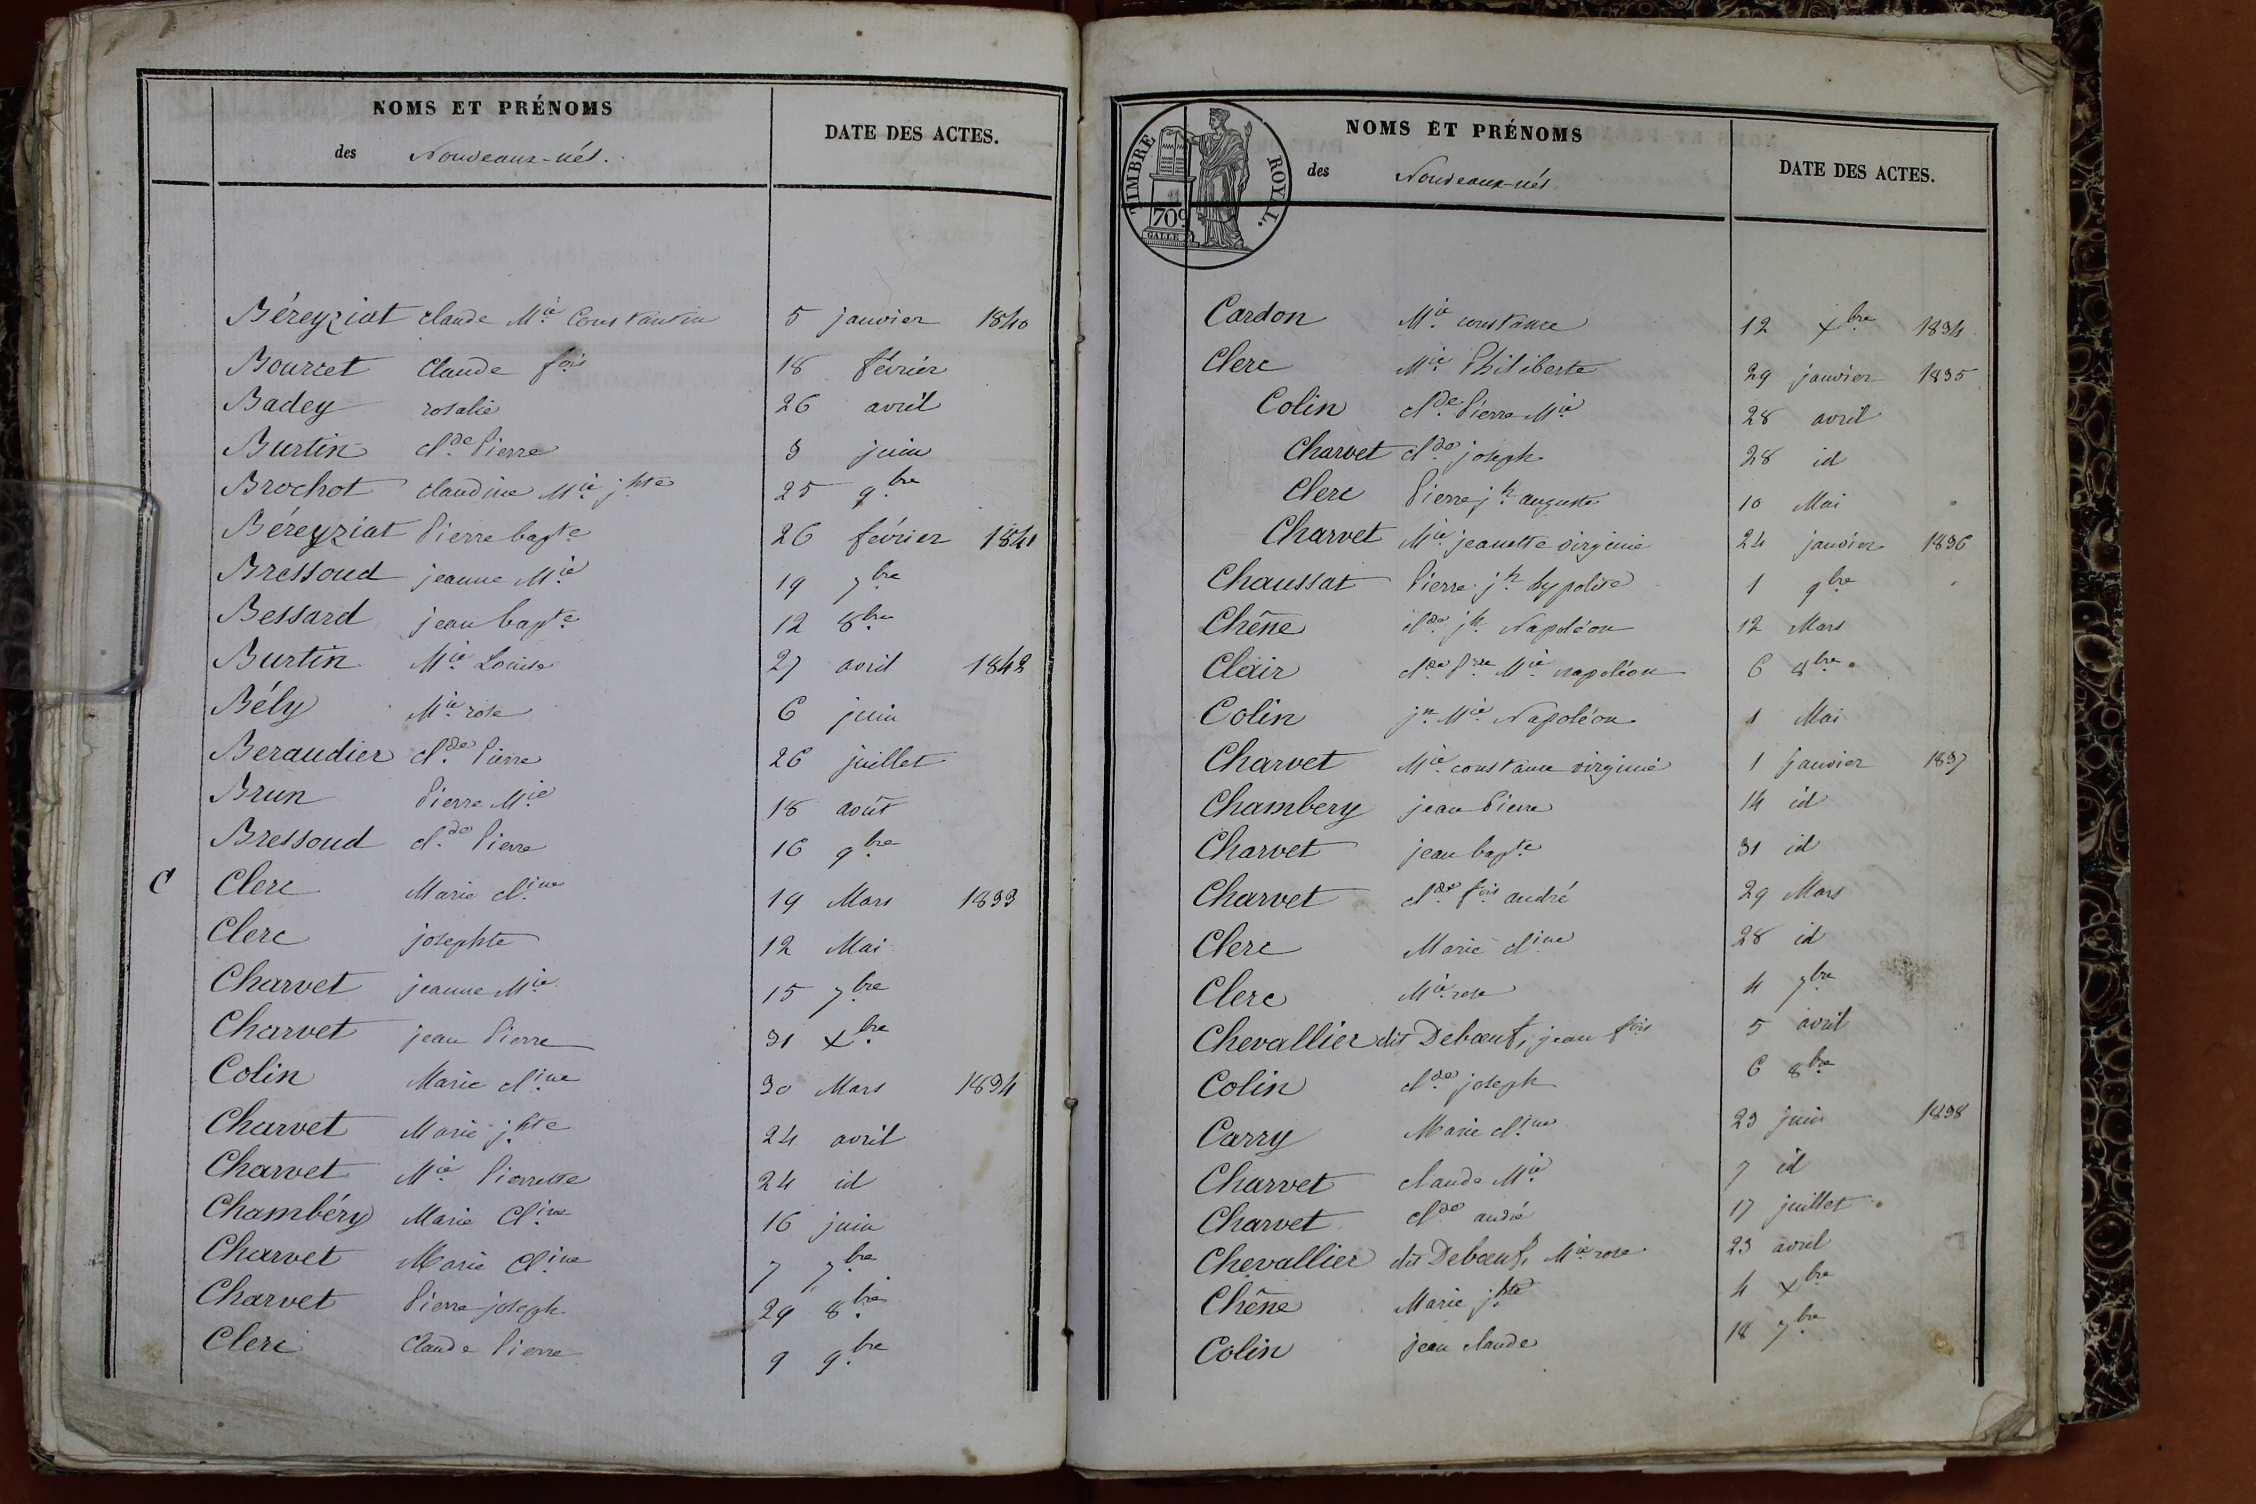 NOMS ET PRÉNOMS
des Nouveaux-nés.
DATE DES ACTES.
Béreyziat claude Mie Constantin 5 janvier 1840
Bourcet Claude fois 18 février
Badey rosalie 26 avril
Burtin Cl.de Pierre 3 juin
Brochot claudine Mie jhte 25 9.bre
Béreyziat Pierre bapte 26 février 1841
Bressoud jeanne Mie 19 7bre
Bessard jean bapte 12 8bre
Burtin Mie Louise 27 avril 1842
Bély Mie rose 6 juin
Beraudier Cl.de Pierre 26 juillet
Brun Pierre Mie 18 août
Bressoud Cl.de Pierre 16 9.bre
C Clerc Marie Cl.ine 19 Mars 1833
Clerc josephte 12 Mai
Charvet jeanne Mie 15 7bre
Charvet jean Pierre 31 Xbre
Colin Marie Cl.ine 30 Mars 1834
Charvet Marie jhte 24 avril
Charvet Mie Pierrette 24 id
Chambéry Marie Cl.ine 16 juin
Charvet Marie Cl.ine 7 7bre
Charvet Pierre joseph 29 8bre
Clerc Claude Pierre 9 9.bre
TIMBRE ROYAL.
70c
NOMS ET PRÉNOMS
des Nouveaux-nés
DATE DES ACTES.
Cardon Mie constance 12 Xbre 1834
Clerc Mie Philiberte 29 janvier 1835
Colin Cl.de Pierre Mie 28 avril
Charvet Cl.de joseph 28 id
Clerc Pierre jh auguste 10 Mai
Charvet Mie jeanette virginie 24 janvier 1836
Chaussat Pierre jh hypolite 1 9bre
Chêne Cl.de jh Napoléon 12 Mars
Clair Cl.de Pre Mie napoléon 6 8bre
Colin jn Mie Napoléon 1 Mai
Charvet Mie constance virginie 1 janvier 1837
Chambery jean Pierre 14 id
Charvet jean bapte 31 id
Charvet Cl.de fois andré 29 Mars
Clerc Marie Cl.ine 28 id
Clerc Mie rose 4 7bre
Chevallier dit Debœuf, jean fois 5 avril
Colin Cl.de joseph 6 8bre
Carry Marie Cl.ine 23 juin 1838
Charvet claude Mie 7 id
Charvet Cl.de andré 17 juillet
Chevallier dit Debœuf, Mie rose 23 avril
Chêne Marie jhte 4 Xbre
Colin jean claude 18 7bre